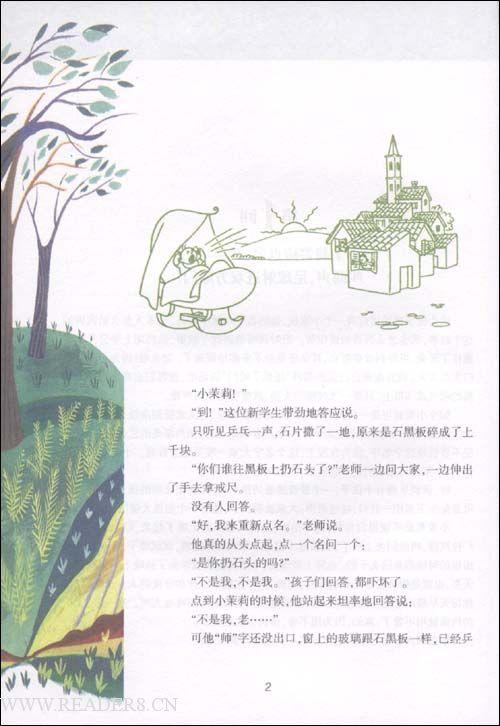 “小茉莉！”
“到！”这位新学生带劲地答应说。
只听见乒乓一声，石片撒了一地，原来是石黑板碎成了上
千块。
“你们谁往黑板上扔石头了？”老师一边问大家，一边伸出
了手去拿戒尺。
没有人回答。
“好，我来重新点名。”老师说。
他真的从头点起，点一个名问一个：
“是你扔石头的吗？”
“不是我，不是我。”孩子们回答，都吓坏了。
点到小茉莉的时候，他站起来坦率地回答说：
“不是我，老……”
可他“师”字还没出口，窗上的玻璃跟石黑板一样，已经乒
2
WWW.READER8.CN